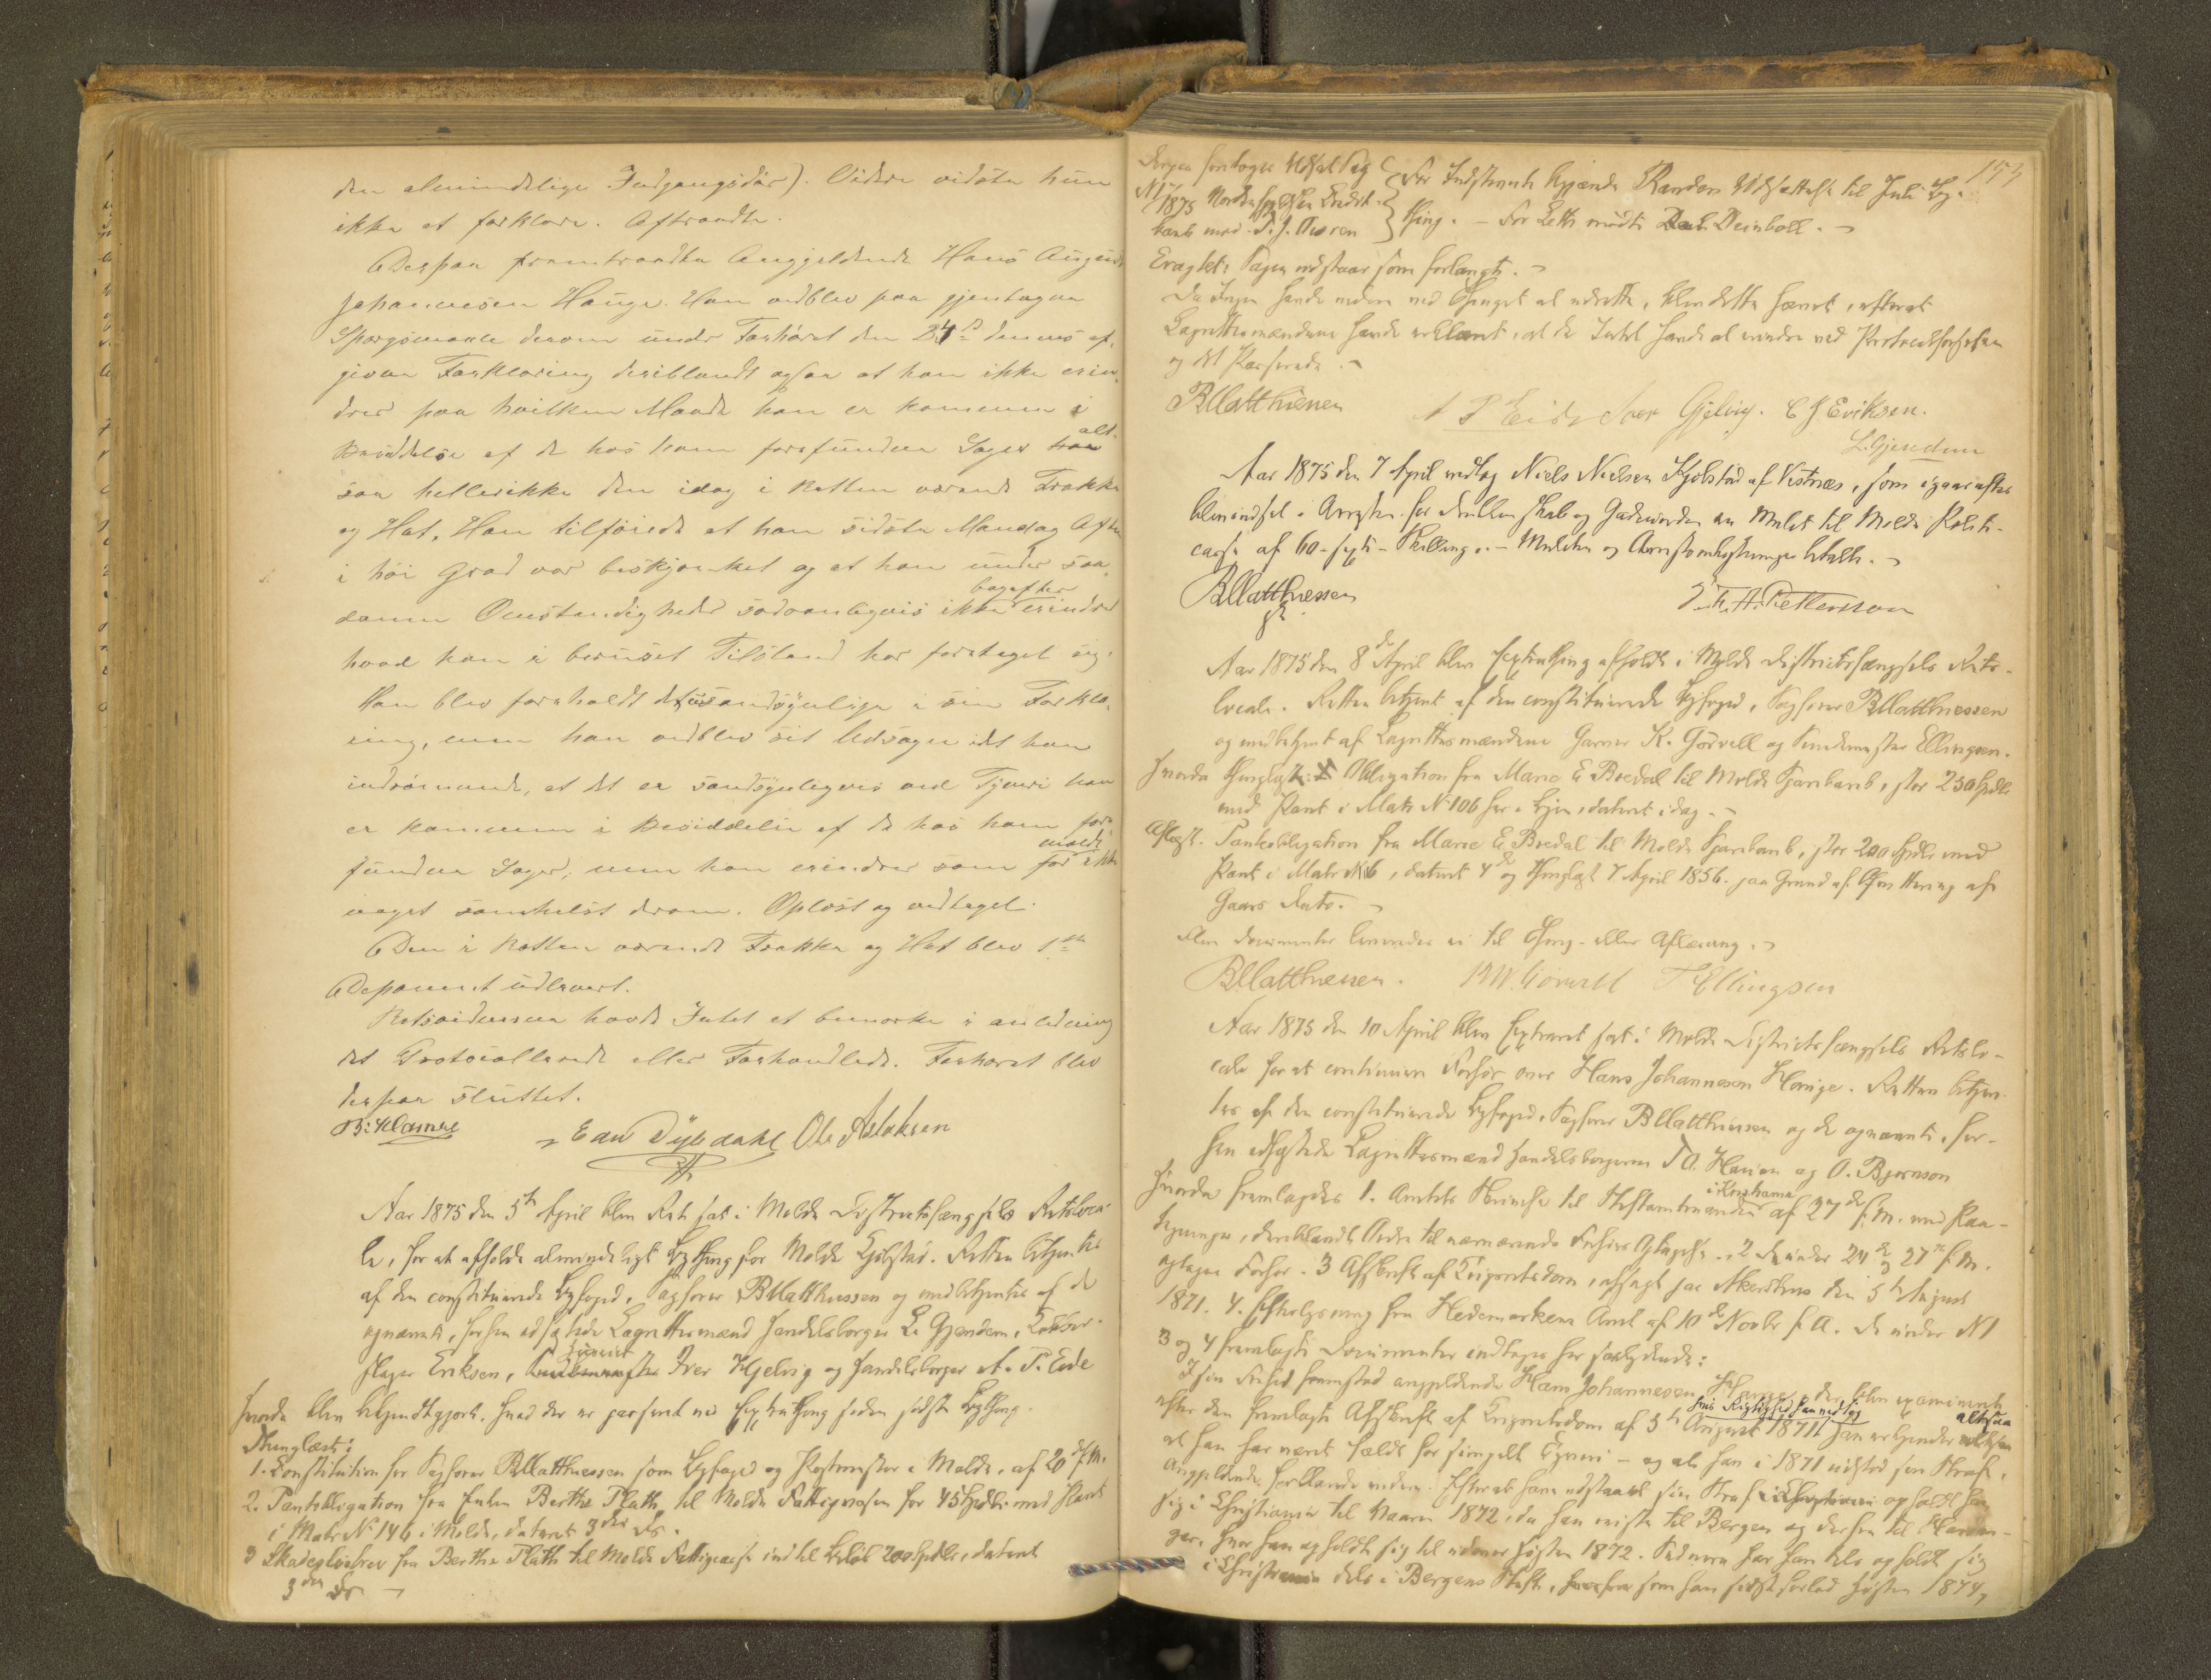 den almindelige Indgangsdør). Videre vidste hun
ikke at forklare. Aftraadte.
Derpaa fremtraadte Angjeldende Hans August
Johannesen Hauge. Han vedblev paa gjentagne
Spørgsmaale derom under Forhøret den 24de dennes af-
givne Forklaring deriblandt ogsaa at han ikke erin-
drer paa hvilken Maade han er kommen i
Besiddelse af de hos ham forefundne Sager alt-
saa hellerikke den idag i Retten værende Frakke
og Hat. Han tilføiede at han sidste Mandag Aften
i høi Grad var beskjænket og at han under saa-
danne Omstændigheder sædvanligvis ikke bagefter erindrer
hvad han i beruset Tilstand har foretaget sig.
Han blev foreholdt det usandsynlige i sin Forkla-
ring, men han vedblev sit Udsagn idet han
indrømmede, at det er sandsynligvis ved Tyveri han
er kommen i Besiddelse af de hos ham fore-
fundne Sager, men han erindrer som før meldt ikke
noget somhelst derom. Oplæst og vedtaget.
Den i Retten værende Frakke og Hat blev 1ste
Deponent udleveret.
Retsvidnerne havde Intet at bemærke i anledning
det Protocollerede eller Forhandlede. Forhøret blev
derpaa sluttet.
Edv Dybdahl Ole Aslaksen
Aar 1875 den 5te April blev Ret sat i Molde Districtsfængsels Retsloca-
le, for at afholde almindeligt Bything for Molde Kjøbstad. Retten betjentes
af den constituerede Byfoged, Sagfører B Matthiessen og medbetjentes af de
opnævnte, forhen edfæstede Lagrettesmænd Handelsborger L. Gjendem, Kobber-
slager Eriksen, Iver Gjelvig og Handelsborger A. P. Eide
hvorda blev bekjendtgjort, hvad der er passeret ved Extrathing siden sidste Bything.
Thinglæst:
1. Constitution for Sagfører B Matthiessen som Byfoged og Postmester i Molde, af 20de f. M.
2. Panteobligation fra Enken Berthe Plath til Molde Fattigvæsen for 45 Spdlr. med Pant
i Matr No 146 i Molde, dateret 3die ds.
3 Skadesløsbrev fra Berthe Plath til Molde Fattigcasse indtil Beløb 200 Spdlr, dateret
3die ds
153
Derpaa foretoges Udsat Sag
No 1/1875 Nordenfjeldske Credit-
bank mod P. J. Owren
For Indstevnte begjærede Randers Udsættelse til Juli By-
thing. - For Leth mødte Deinboll.
Eragtet: Sagen udstaar som forlangt.
Da Ingen havde videre ved Thinget at udrette, blev dette hævet, efterat
Lagrettesmændene havde erklæret, at de Intet havde at erindre ved Protocolførselen
og det Passerede.
B Matthiessen A P Eide Iver Gjelvig. C J Eriksen.
L. Gjendem
Aar 1875 den 7 April vedtog Niels Nielsen Kjølstad af Vestnæs, som igaaraftes
blev indsat i Arresten for Drukkenskab og Gadeuorden en Mulct til Molde Politi-
casse af 60 - sexti - Skilling. - Mulcten og Arrestomkostninger betalte.
B Matthiessen
Aar 1875 den 8de April blev Extrathing afholdt i Molde Districtsfængsels Rets-
locale. Retten betjent af den constituerede Byfoged, Sagfører B Matthiessen
og medbetjent af Lagrettesmændene Garver K. Gørvell og Ellingsen.
hvorda thinglæstes Obligation fra Marie E Bredal til Molde Sparebank, stor 250 Spdlr
med Pant i Matr No 106 her i Byen, dateret idag.
Aflæst. Panteobligation fra Marie E Bredal til Molde Sparebank, stor 200 Spdlr med
Pant i Matr No 6, dateret 4de og thinglæst 7 April 1856. paa Grund af Qvittering af
Gaars Dato.
Flere Documenter anmeldes ei til Thing- eller Aflæsning.
B Matthiessen. Gørvell Ellingsen
Aar 1875 den 10 April blev Extraret sat i Molde Districtsfængsels Retslo-
cale for at continuere Forhør over Hans Johannesen Hauge. Retten betjen-
tes af den constituerede Byfoged, Sagfører B Matthiessen og de opnævnte, for-
hen edfæstede Lagrettesmænd Handelsborgerne Hansen og O. Bjørnson
hvorda fremlagdes 1. Amtets Skrivelse til Stiftamtmanden i Kristiania af 27de f. M. med Paa-
tegninger, deriblandt Ordre til nærværende Forhørs Optagelse. 2. de under 24de og 27de f. M.
optagne Forhør. 3 Afskrift af Extraretsdom, afsagt paa Akershus den 5te August
1871. 4. Efterlysning fra Hedemarkens Amt af 10de Novbr f. A. De under No 1
3 og 4 fremlagte Documenter indtages her saalydende:
I sin Frihed fremstod angjeldende Hans Johannesen Hauge, der blev examineret
efter den fremlagte Afskrift af Extraretsdom af 5te August 1871, hvis Rigtighed han vedtog, han erkjender altsaa
at han har været fældt for simpelt Tyveri - og at han i 1871 udstod sin Straf.
Angjeldende forklarede videre. Efterat have udstaaet sin Straf opholdt han
sig i Christiania til Vaaren 1872, da han reiste til Bergen og derfra til Hardan-
ger, hvor han opholdt sig til udover Høsten 1872. Siden har han dels opholdt sig
i Christiania dels i Bergens Stift, som han sidst forlod Høsten 1874,